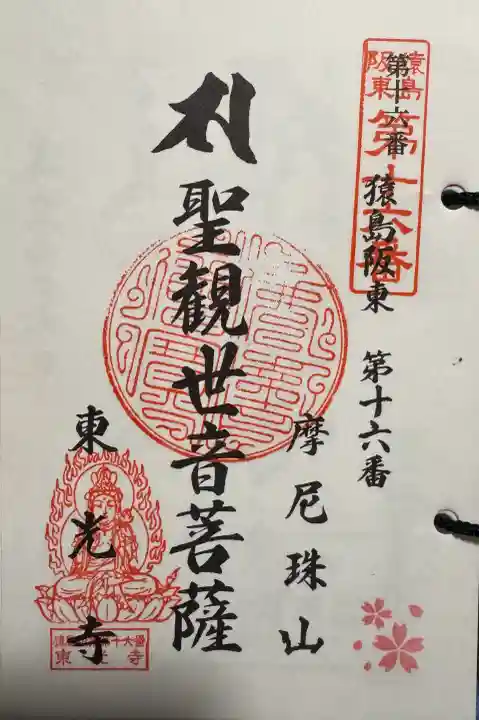 猿島阪東
第十六番
第十六番 猿島阪東 第十六番
摩尼珠山
聖観世音菩薩
東光寺
東光寺